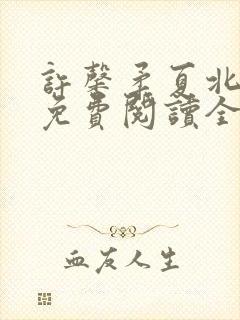 許馨矛夏北
免費閱讀全
血友人生